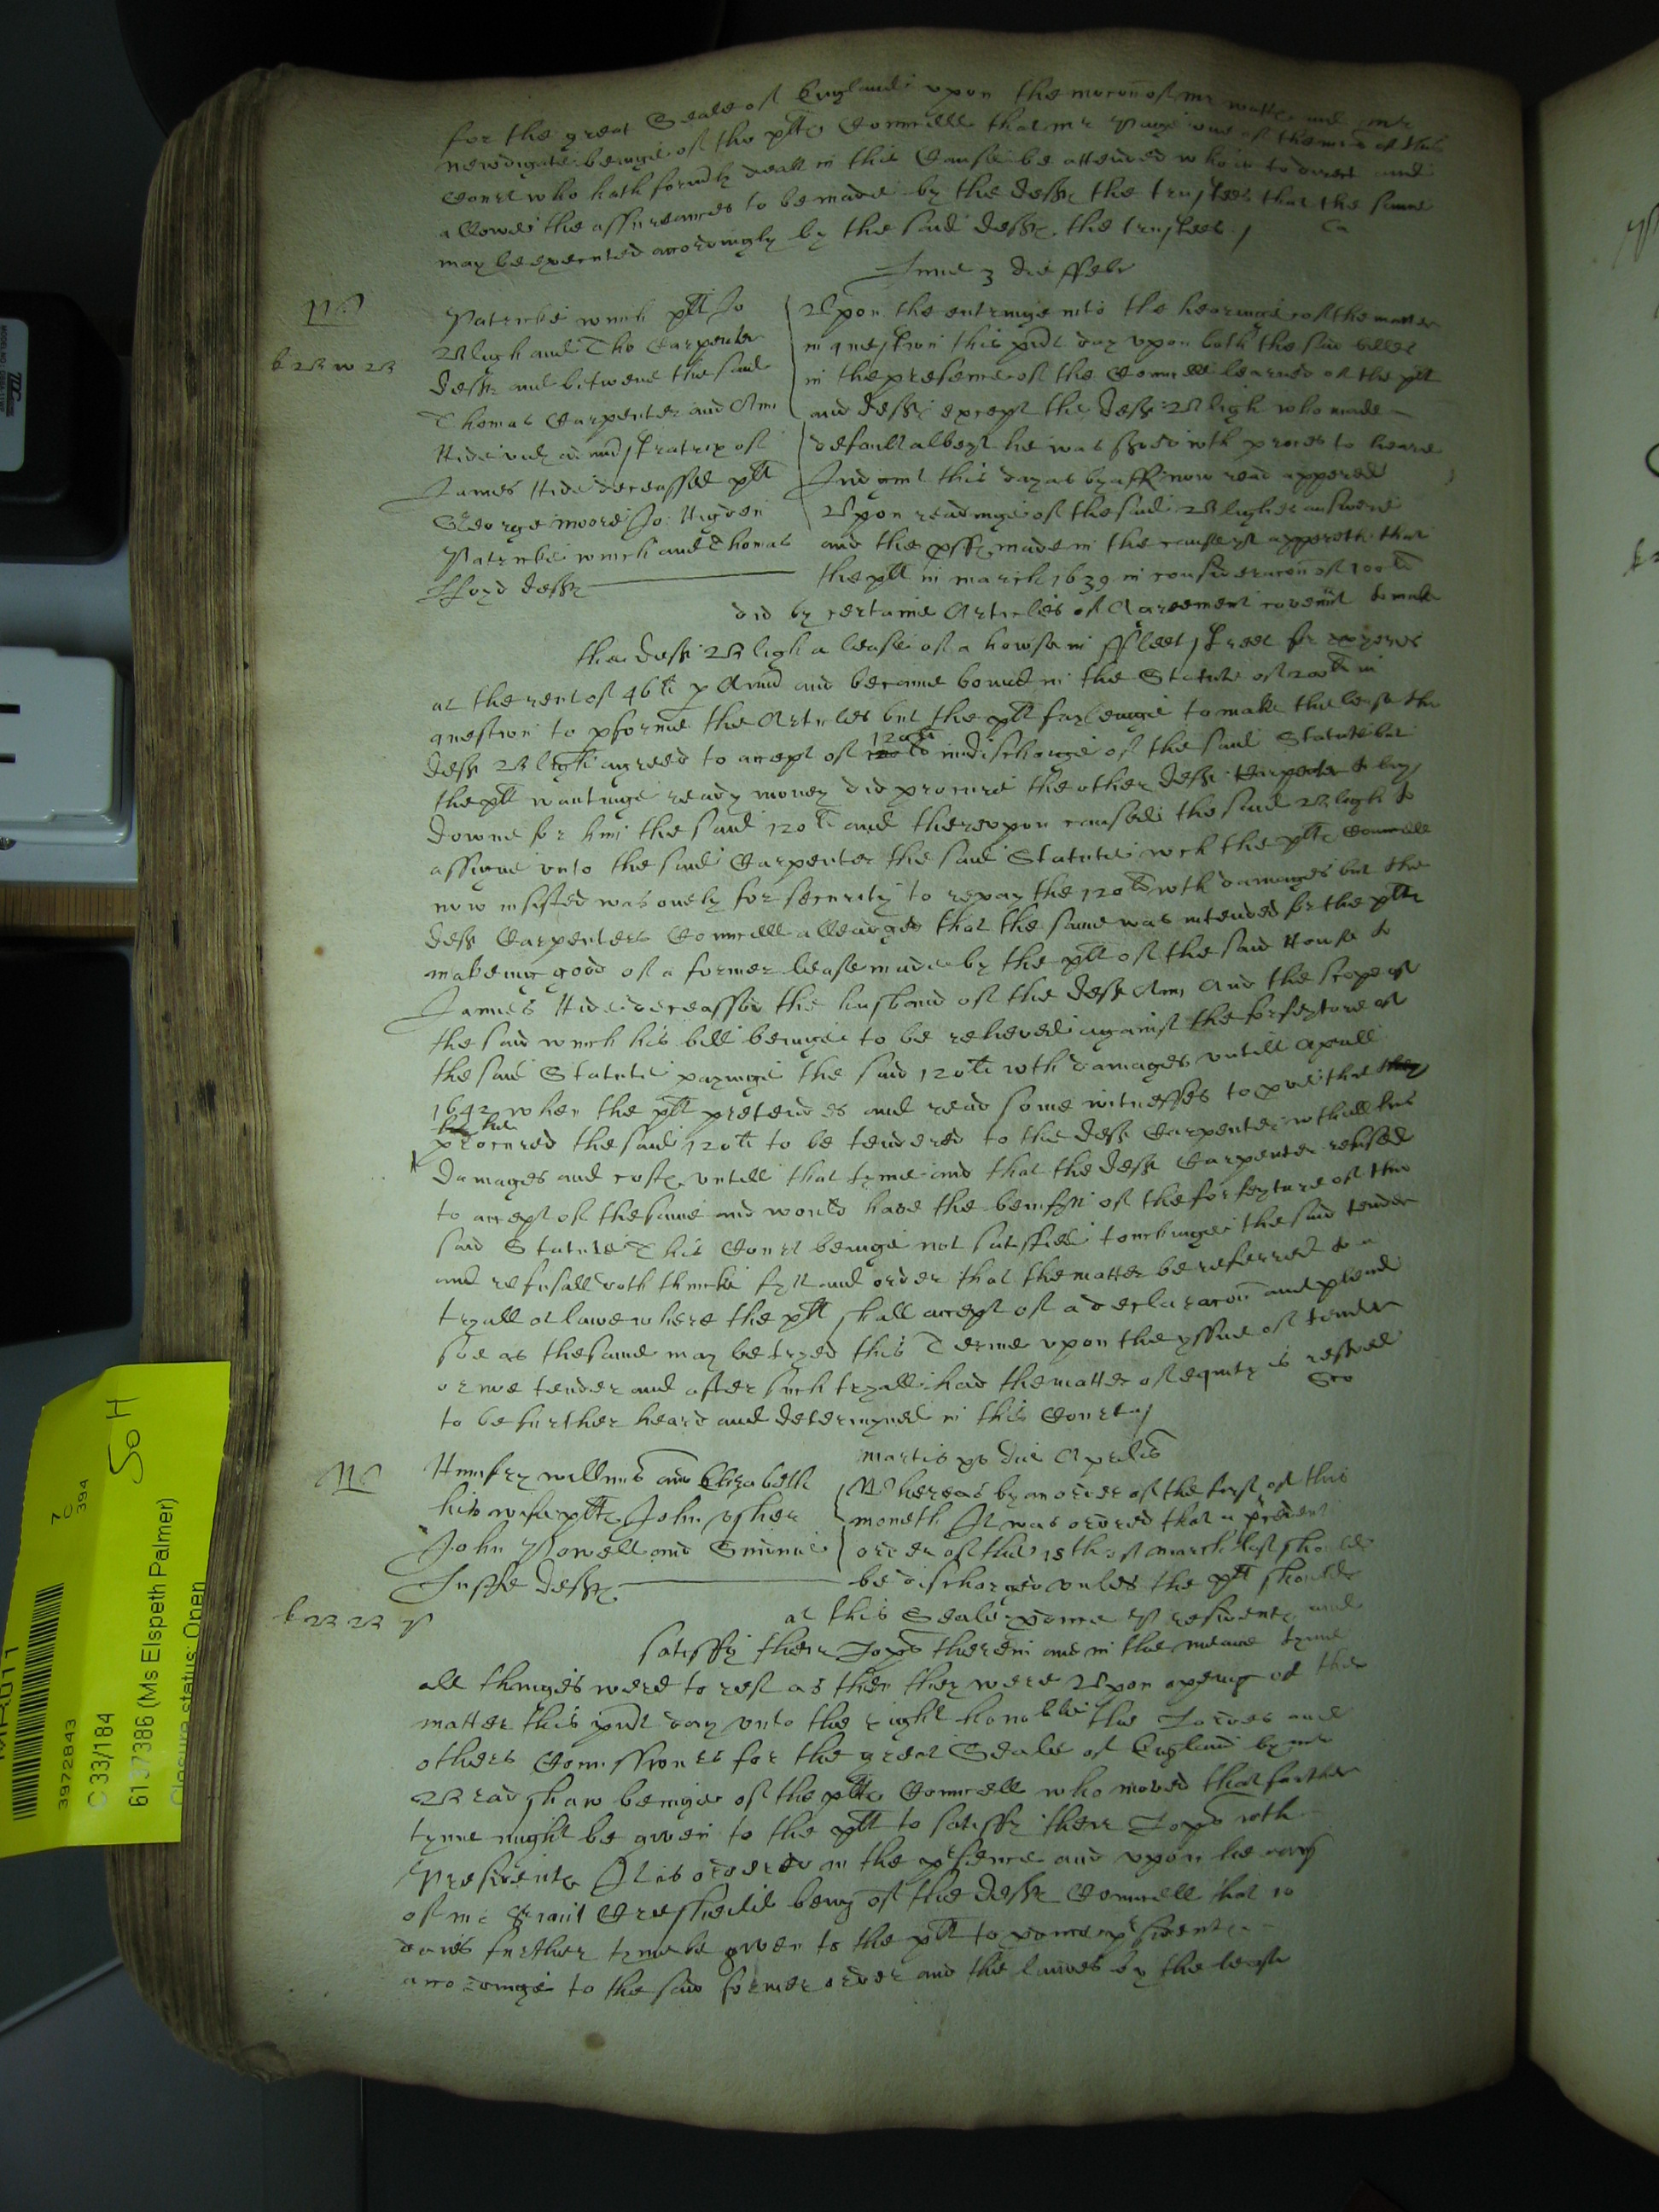 for the great Seale of England upon the mocon of mr watts and mr
newdigate beinge of the plts Councell that mr Page one of the mrs of this
Court who hath formly dealt in this Cause be attended who is to direct and
allowe the assureances to be made by the defts the trustees that the same
may be executed accordingly by the said defts the trustees
Ca
3 die ffebr
Patricke winch plt Jo
Bligh and Tho Carpenter
defts and betweene the said
Thomas Carpenter and Ann
Hide vid administratrix of
James Hide deceassed plt
George moore Jo: Higden
Patricke winch and Thomas
Lloyd defts
Upon the entringe into the hearinge of the matter
in question this pnt day upon both the said billes
in the presence of the Councell learned of the plt
and defts except the deft Bligh who made
default albeyt he was served with proces to heare
Judgmt this day as by afft now read appered
Upon readinge of the said Blighes answere
and the pffs made in the cause yt appereth that
the plt in march 1639 in consideracon of 100li
did by certaine Articles of Agreement covennt to make
the deft Bligh a lease of a howse in ffleetstreet for yeres
at the rent of 46li p Annu and became bound in the Statute of 200li in
question to pforme the Articles but the plt fayleinge to make the lease the
deft Bligh agreed to accept of 120li in discharge of the said Statute but
the plt wantinge ready money did procure the other deft Carpenter to lay
downe for him the said 120li and thereupon caused the said Bligh to
assigne unto the said Carpenter the said Statute wch the plts Councell
now insisted was onely for security to repay the 120li wth damages but the
deft Carpenters Councell alleaged that the same was intended for the plts
makeinge good of a former lease made by the plt of the said House to
James Hide deceassed the husband of the deft Ann And the scope of
the said winch his bill beinge to be releived against the forfeyture of
the said Statute payinge the said 120li wth damages untill Aprill
1642 when the plt pretendes and read some witnesses to prove that
he
procured the said 120li to be tendered to the deft Carpenter with all his
damages and costs untill that tyme and that the deft Carpenter refused
to accept of the same and would have the benefytt of the forfeyture of the
said Statute This Court beinge not satisfied touchinge the said tender
and refusall doth thincke fytt and order that the matter be referred to a
tryall at lawe where the plt shall accept of a declaracon and plead
soe as the same may be tryed this Terme upon the yssue of tender
or noe tender and after such tryall had the matter of equity is reserved
to be further heard and determyned in this Court
Martis po die Aprilis
Humfry willms and Elizabeth
his wife plts John Usher
John Powell and
defts
Whereas by an order of the first of this
moneth It was ordered that a precedent
order of the 18th of march last should
be discharged unles the plt should
at this Seale pduce Presidents and
satisfy their Lopps therein and in the meane tyme
all thinges were to rest as then they were Upon openinge of the
matter this pnt day unto the right honoble the Lordes and
others Comissionrs for the great Seale of England by mr
Bradshaw beinge of the plts Councell who moved that further
tyme might be given to the plt to satisfy their Lopps wth
Presidents It is ordered in the psence and upon heareing
of mr being of the defts Councell that 10
daies further tyme be given to the plt to pduce psidents
accordinge to the said former order and the landes by the lease
3972843
7C
394
C 33/184
SoH
6137386 (Ms Elspeth Palmer)
Closure status: Open